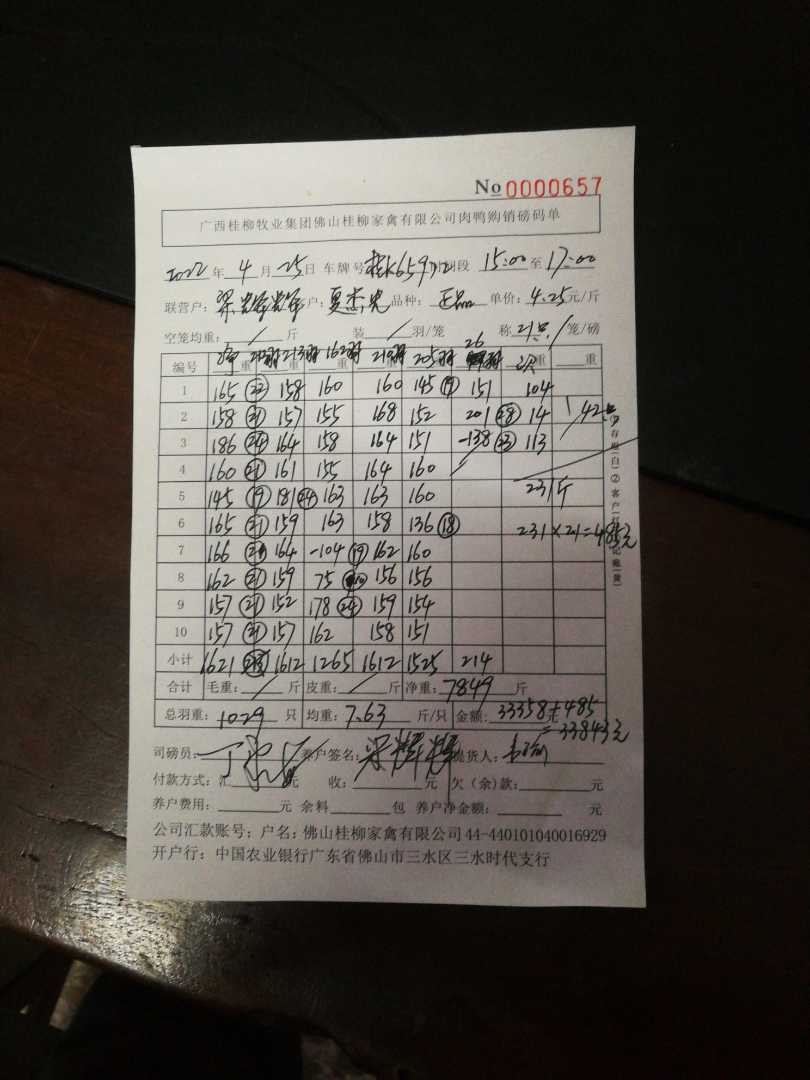 No 0000657
广西桂柳牧业集团佛山桂柳家禽有限公司肉鸭购销磅码单
2022年 4月 25日 车牌号 桂K659 时间段 15:00 至 17:00
联营户: 客户: 夏杰光 品种: 正品 单价: 4.25 元/斤
空笼均重: / 斤 装 / 羽/笼 称 21只/ 笼/磅
26
编号 净重 213羽 162羽 205羽 次重 重
1 165 (22) 158 160 160 145 (19) 151 104
2 158 (21) 157 155 168 152 201 (28) 14 /42只
3 186 (24) 164 158 164 151 -138 (23) 113
4 160 (21) 161 155 164 160
5 145 (19) 181 (24) 163 163 160 231斤
6 165 (21) 159 163 158 136 (18) 231×21=485元
7 166 164 -104 (19) 162 160
8 162 (21) 159 75 156 156
9 157 (21) 152 178 (24) 159 154
10 157 (21) 157 162 158 151
小计 1621 1612 1265 1612 1525 214
合计 毛重: / 斤 皮重: / 斤 净重: 7849 斤
总羽重: 1029 只 均重: 7.63 斤/只 金额: 33358+485
=33843元
司磅员: 养户签名: 梁辉辉 提货人:
付款方式: 汇 元 收: 元 欠(余)款: 元
养户费用: 元 余料 包 养户净金额: 元
公司汇款账号: 户名: 佛山桂柳家禽有限公司 44-440101040016929
开户行: 中国农业银行广东省佛山市三水区三水时代支行